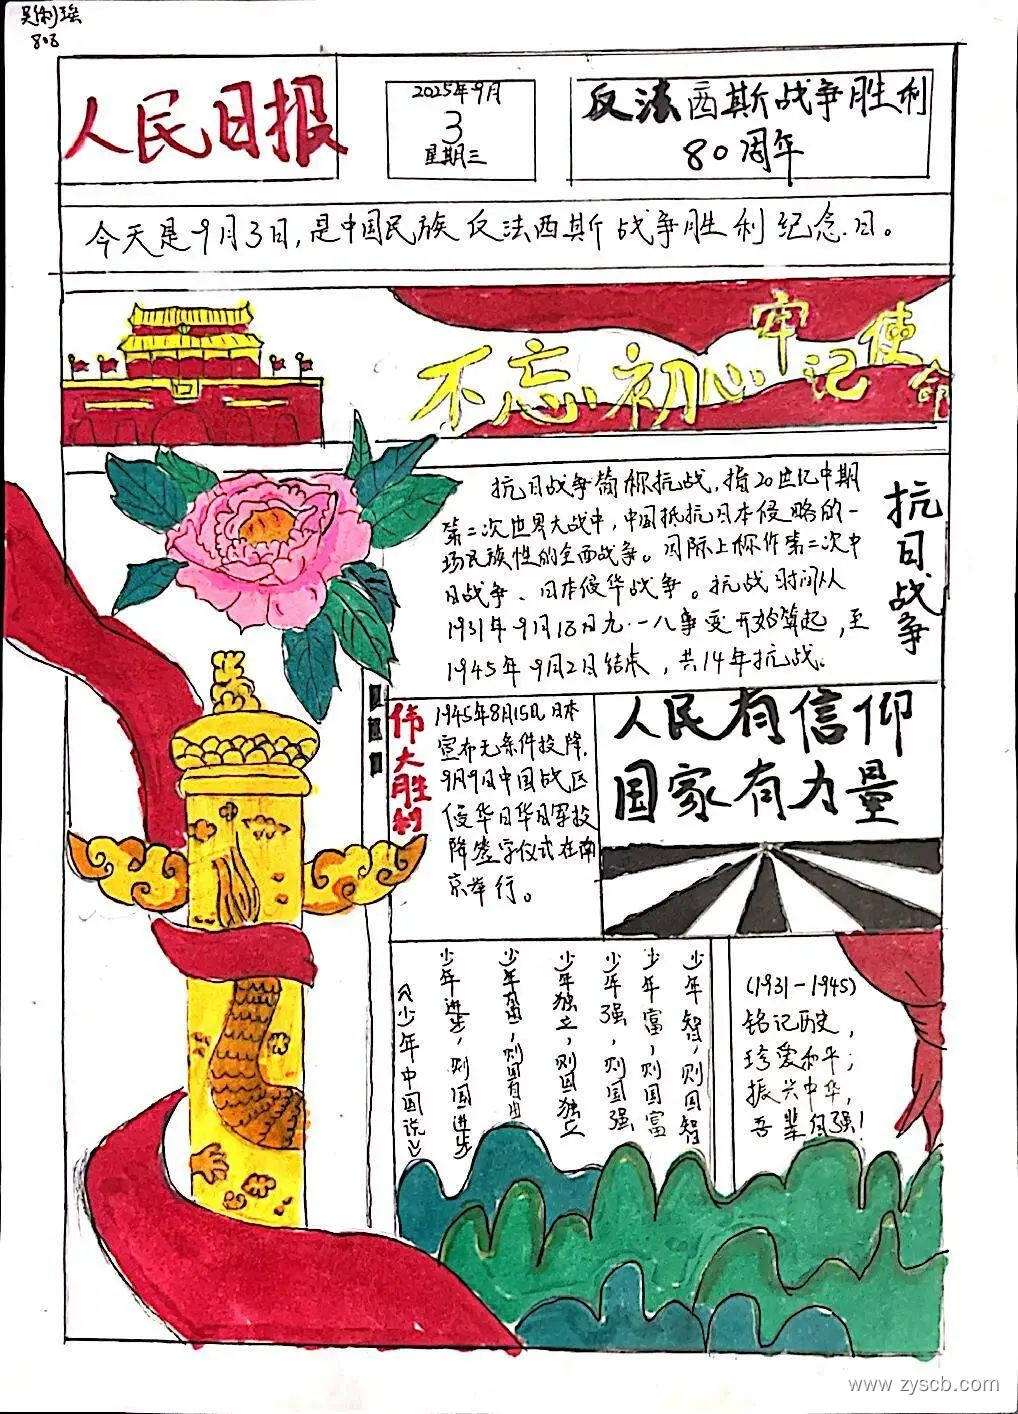 808
人民日报
2025年9月
3
星期三
反法西斯战争胜利
80周年
今天是9月3日,是中国民族反法西斯战争胜利纪念日。
不忘初心牢记使命
抗日战争简称抗战,指20世纪中期
第二次世界大战中,中国抵抗日本侵略的一
场民族性的全面战争。国际上称作第二次中
日战争、日本侵华战争。抗战时间从
1931年9月18日九·一八事变开始算起,至
1945年9月2日结束,共14年抗战。
抗日战争
伟大胜利
1945年8月15日,日本
宣布无条件投降,
9月9日中国战区
侵华日华日军投
降签字仪式在南
京举行。
人民有信仰
国家有力量
少年智,则国智
少年富,则国富
少年强,则国强
少年独立,则国独立
少年自由,则国自由
少年进步,则国进步
《少年中国说》
(1931-1945)
铭记历史,
珍爱和平;
振兴中华,
吾辈自强!
www.zyscb.com